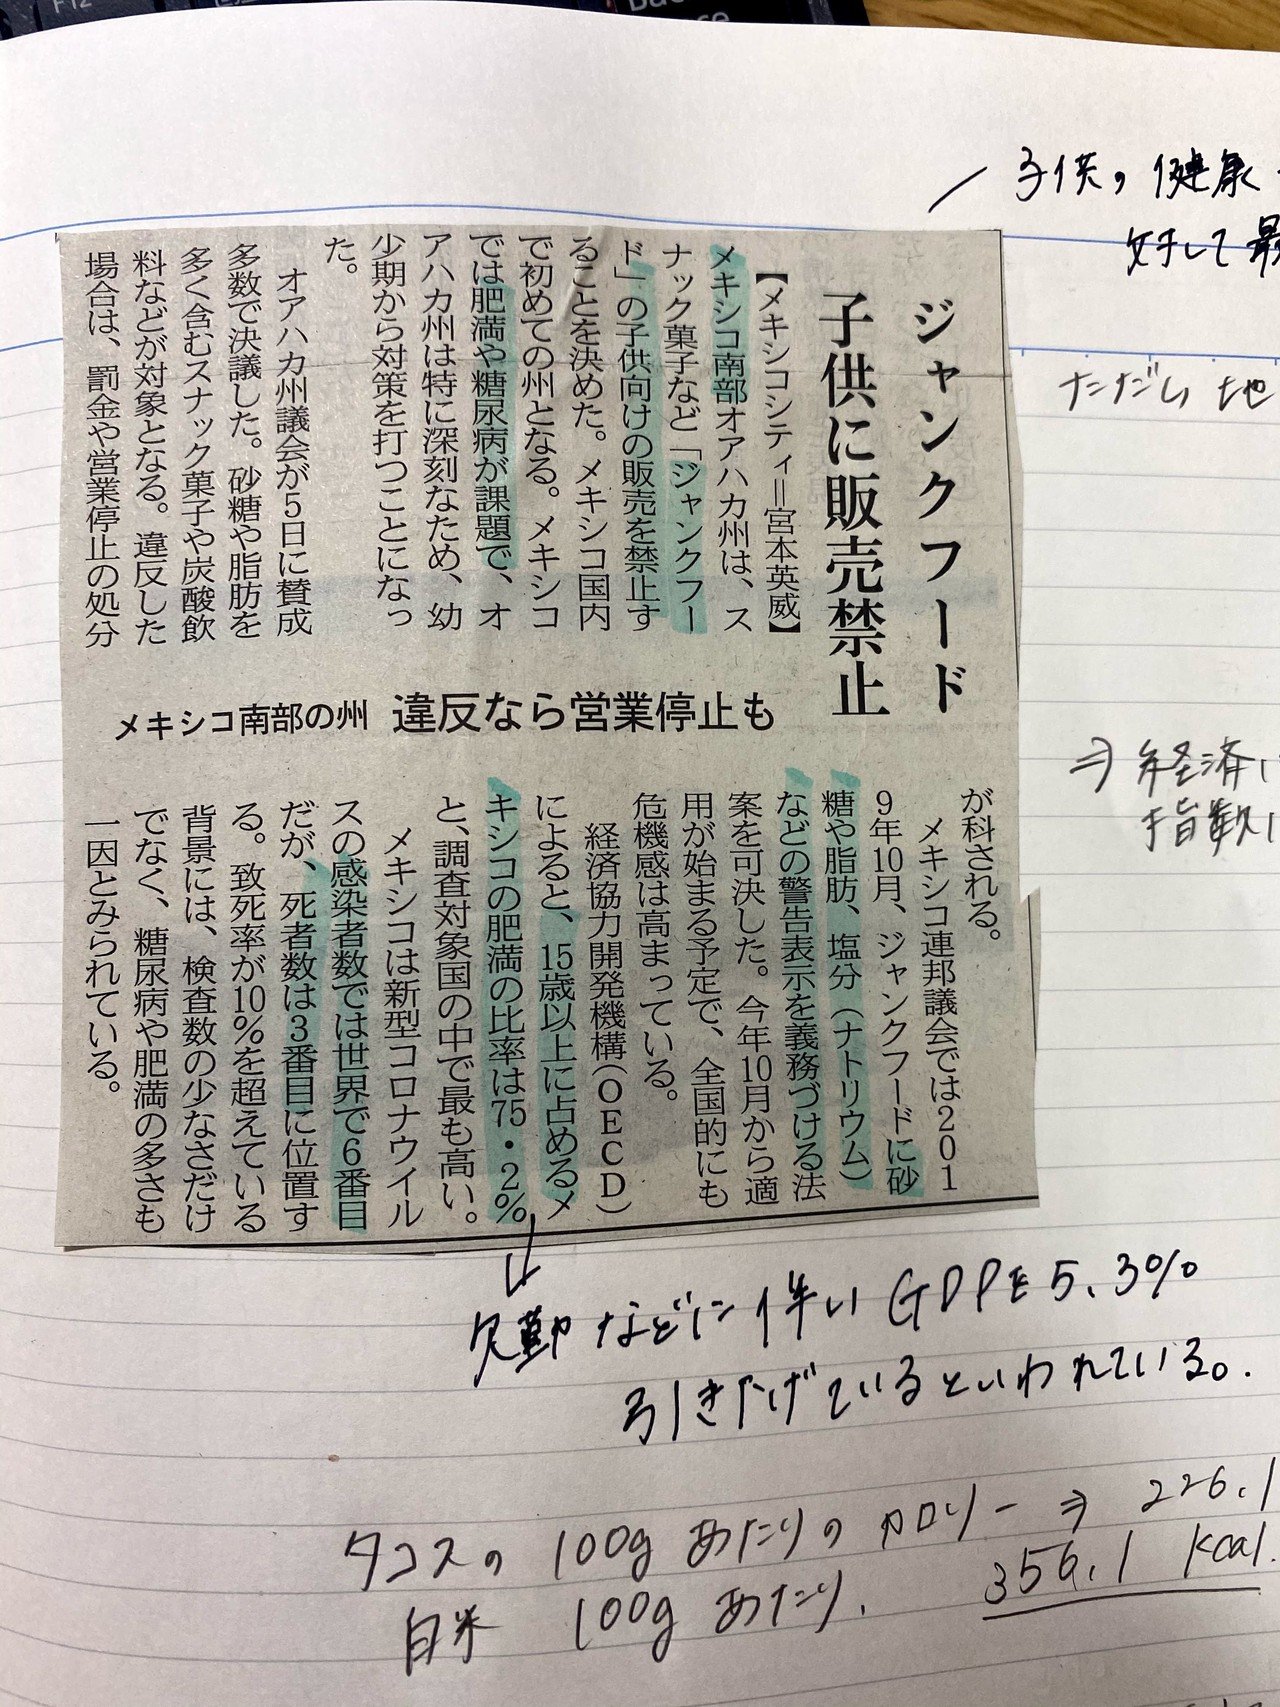 ジャンクフード
子供に販売禁止
メキシコ南部の州 違反なら営業停止も
【メキシコシティ=宮本英威】
メキシコ南部オアハカ州は、ス
ナック菓子など「ジャンクフー
ド」の子供向けの販売を禁止す
ることを決めた。メキシコ国内
で初めての州となる。メキシコ
では肥満や糖尿病が課題で、オ
アハカ州は特に深刻なため、幼
少期から対策を打つことになっ
た。
オアハカ州議会が5日に賛成
多数で決議した。砂糖や脂肪を
多く含むスナック菓子や炭酸飲
料などが対象となる。違反した
場合は、罰金や営業停止の処分
が科される。
メキシコ連邦議会では201
9年10月、ジャンクフードに砂
糖や脂肪、塩分(ナトリウム)
などの警告表示を義務づける法
案を可決した。今年10月から適
用が始まる予定で、全国的にも
危機感は高まっている。
経済協力開発機構(OECD)
によると、15歳以上に占めるメ
キシコの肥満の比率は75・2%
と、調査対象国の中で最も高い。
メキシコは新型コロナウイル
スの感染者数では世界で6番目
だが、死者数は3番目に位置す
る。致死率が10%を超えている
背景には、検査数の少なさだけ
でなく、糖尿病や肥満の多さも
一因とみられている。
子供の健康
対して最
ただし 地
⇒ 経済
指数
欠勤などに伴い GDPを5.3%
引き下げているといわれている。
タコスの 100g あたりのカロリー ⇒ 226.1
白米 100g あたり. 356.1 kcal.